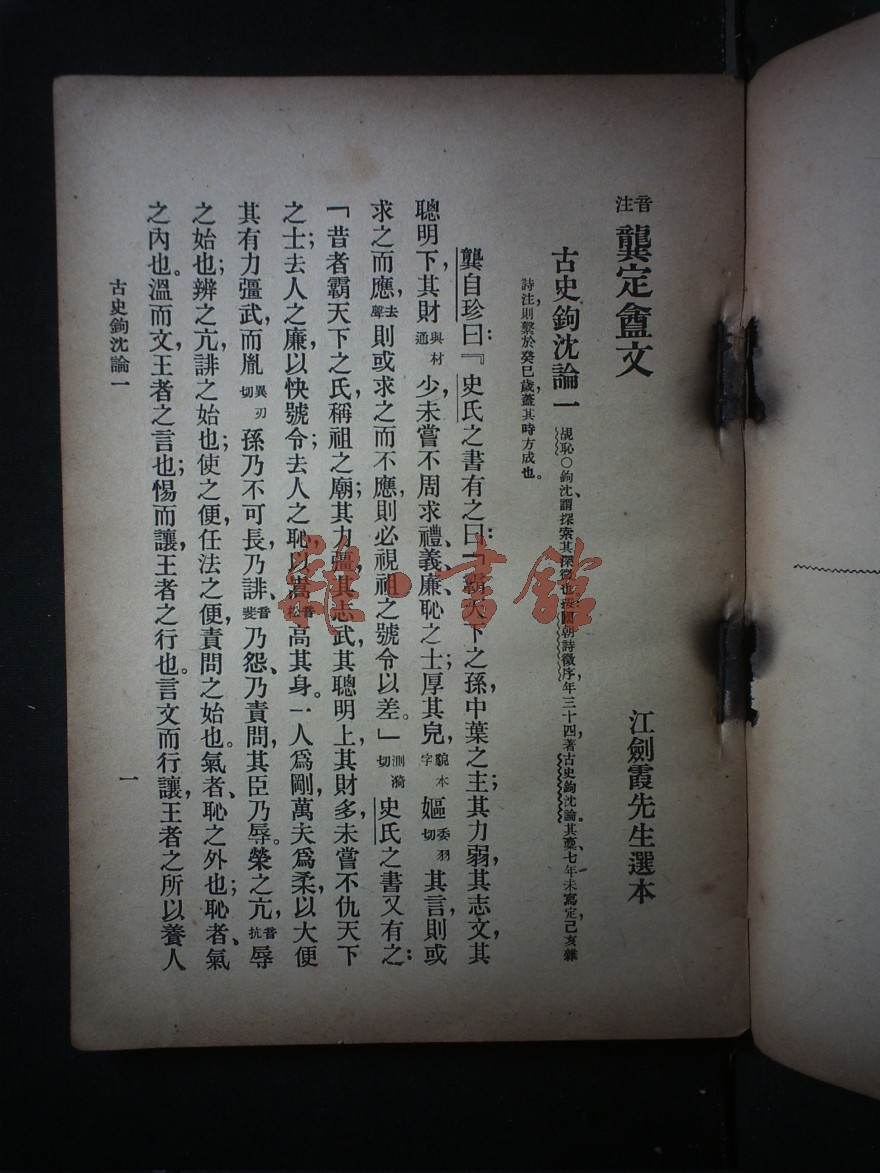 音注 龔定盦文
江劍霞先生選本
古史鉤沈論一 覘恥〇鉤沈、謂探索其深微也、按國朝詩徵序、年三十四、著古史鉤沈論、其藁七年未寫定、己亥雜
詩注則繫於癸巳歲、蓋其時方成也。
龔自珍曰：『史氏之書有之曰：「霸天下之孫，中葉之主；其力弱，其志文，其
聰明下，其財 與材通 少，未嘗不周求禮、義、廉、恥之士；厚其皃，貌本字 嫗 委羽切 其言，則或
求之而應，去聲 則或求之而不應，則必視祖之號令以差。」測漪切 史氏之書又有之：
「昔者霸天下之氏，稱祖之廟；其力彊，其志武，其聰明上，其財多，未嘗不仇天下
之士；去人之廉，以快號令；去人之恥，以嵩 音松 高其身。一人爲剛，萬夫爲柔，以大便
其有力彊武，而胤 異刃切 孫乃不可長，乃誹、音斐 乃怨、乃責問，其臣乃辱。榮之亢，音抗 辱
之始也；辨之亢，誹之始也；使之便，任法之便，責問之始也。氣者、恥之外也；恥者、氣
之內也。溫而文，王者之言也；惕而讓，王者之行也。言文而行讓，王者之所以養人
古史鉤沈論一
一
龍〇書館